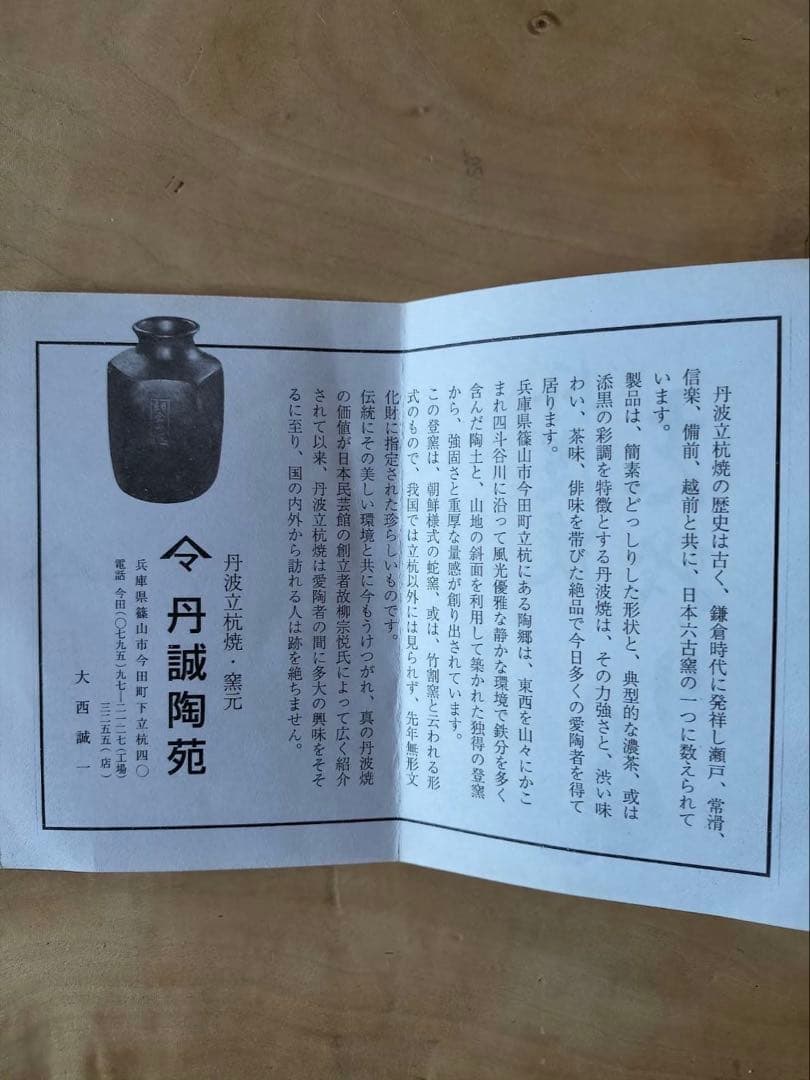 丹波立杭焼の歴史は古く、鎌倉時代に発祥し瀬戸、常滑、
信楽、備前、越前と共に、日本六古窯の一つに数えられて
います。
製品は、簡素でどっしりした形状と、典型的な濃茶、或は
添黒の彩調を特徴とする丹波焼は、その力強さと、渋い味
わい、茶味、俳味を帯びた絶品で今日多くの愛陶者を得て
居ります。
兵庫県篠山市今田町立杭にある陶郷は、東西を山々にかこ
まれ四斗谷川に沿って風光優雅な静かな環境で鉄分を多く
含んだ陶土と、山地の斜面を利用して築かれた独得の登窯
から、強固さと重厚な量感が創り出されています。
この登窯は、朝鮮様式の蛇窯、或は、竹割窯と云われる形
式のもので、我国では立杭以外には見られず、先年無形文
化財に指定された珍らしいものです。
伝統にその美しい環境と共に今もうけつがれ、真の丹波焼
の価値が日本民芸館の創立者故柳宗悦氏によって広く紹介
されて以来、丹波立杭焼は愛陶者の間に多大の興味をそそ
るに至り、国の内外から訪れる人は跡を絶ちません。
丹波立杭焼・窯元
丹誠陶苑
兵庫県篠山市今田町下立杭四〇
電話 今田(〇七九五)九七―二一二七(工場)
三二五五(店)
大西誠一